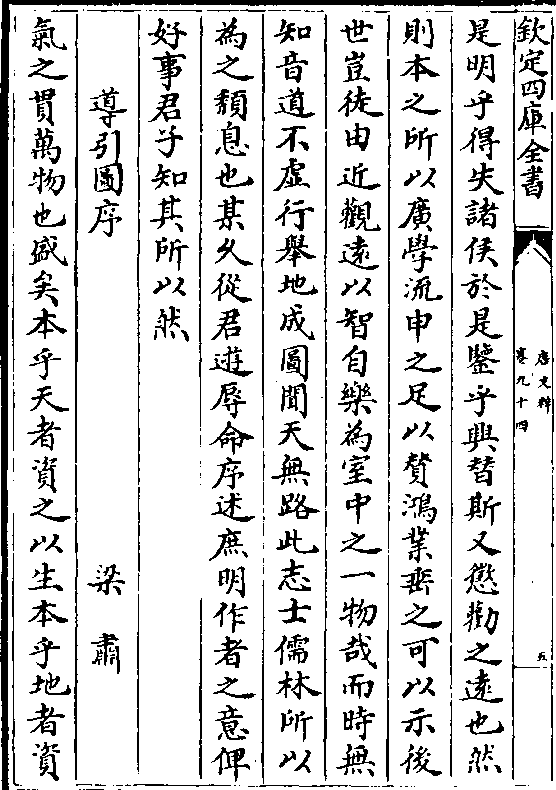 欽定四庫全書
唐文粹
卷九十四
五
是明乎得失諸侯於是鑒乎興替斯又懲勸之遠也然
則本之所以廣學流申之足以賛鴻業垂之可以示後
世豈徒由近觀遠以智自樂為室中之一物哉而時無
知音道不虛行舉地成圖聞天無路此志士儒林所以
為之頽息也某久從君遊辱命序述庶明作者之意俾
好事君子知其所以然
導引圖序 梁肅
氣之貫萬物也盛矣本乎天者資之以生本乎地者資